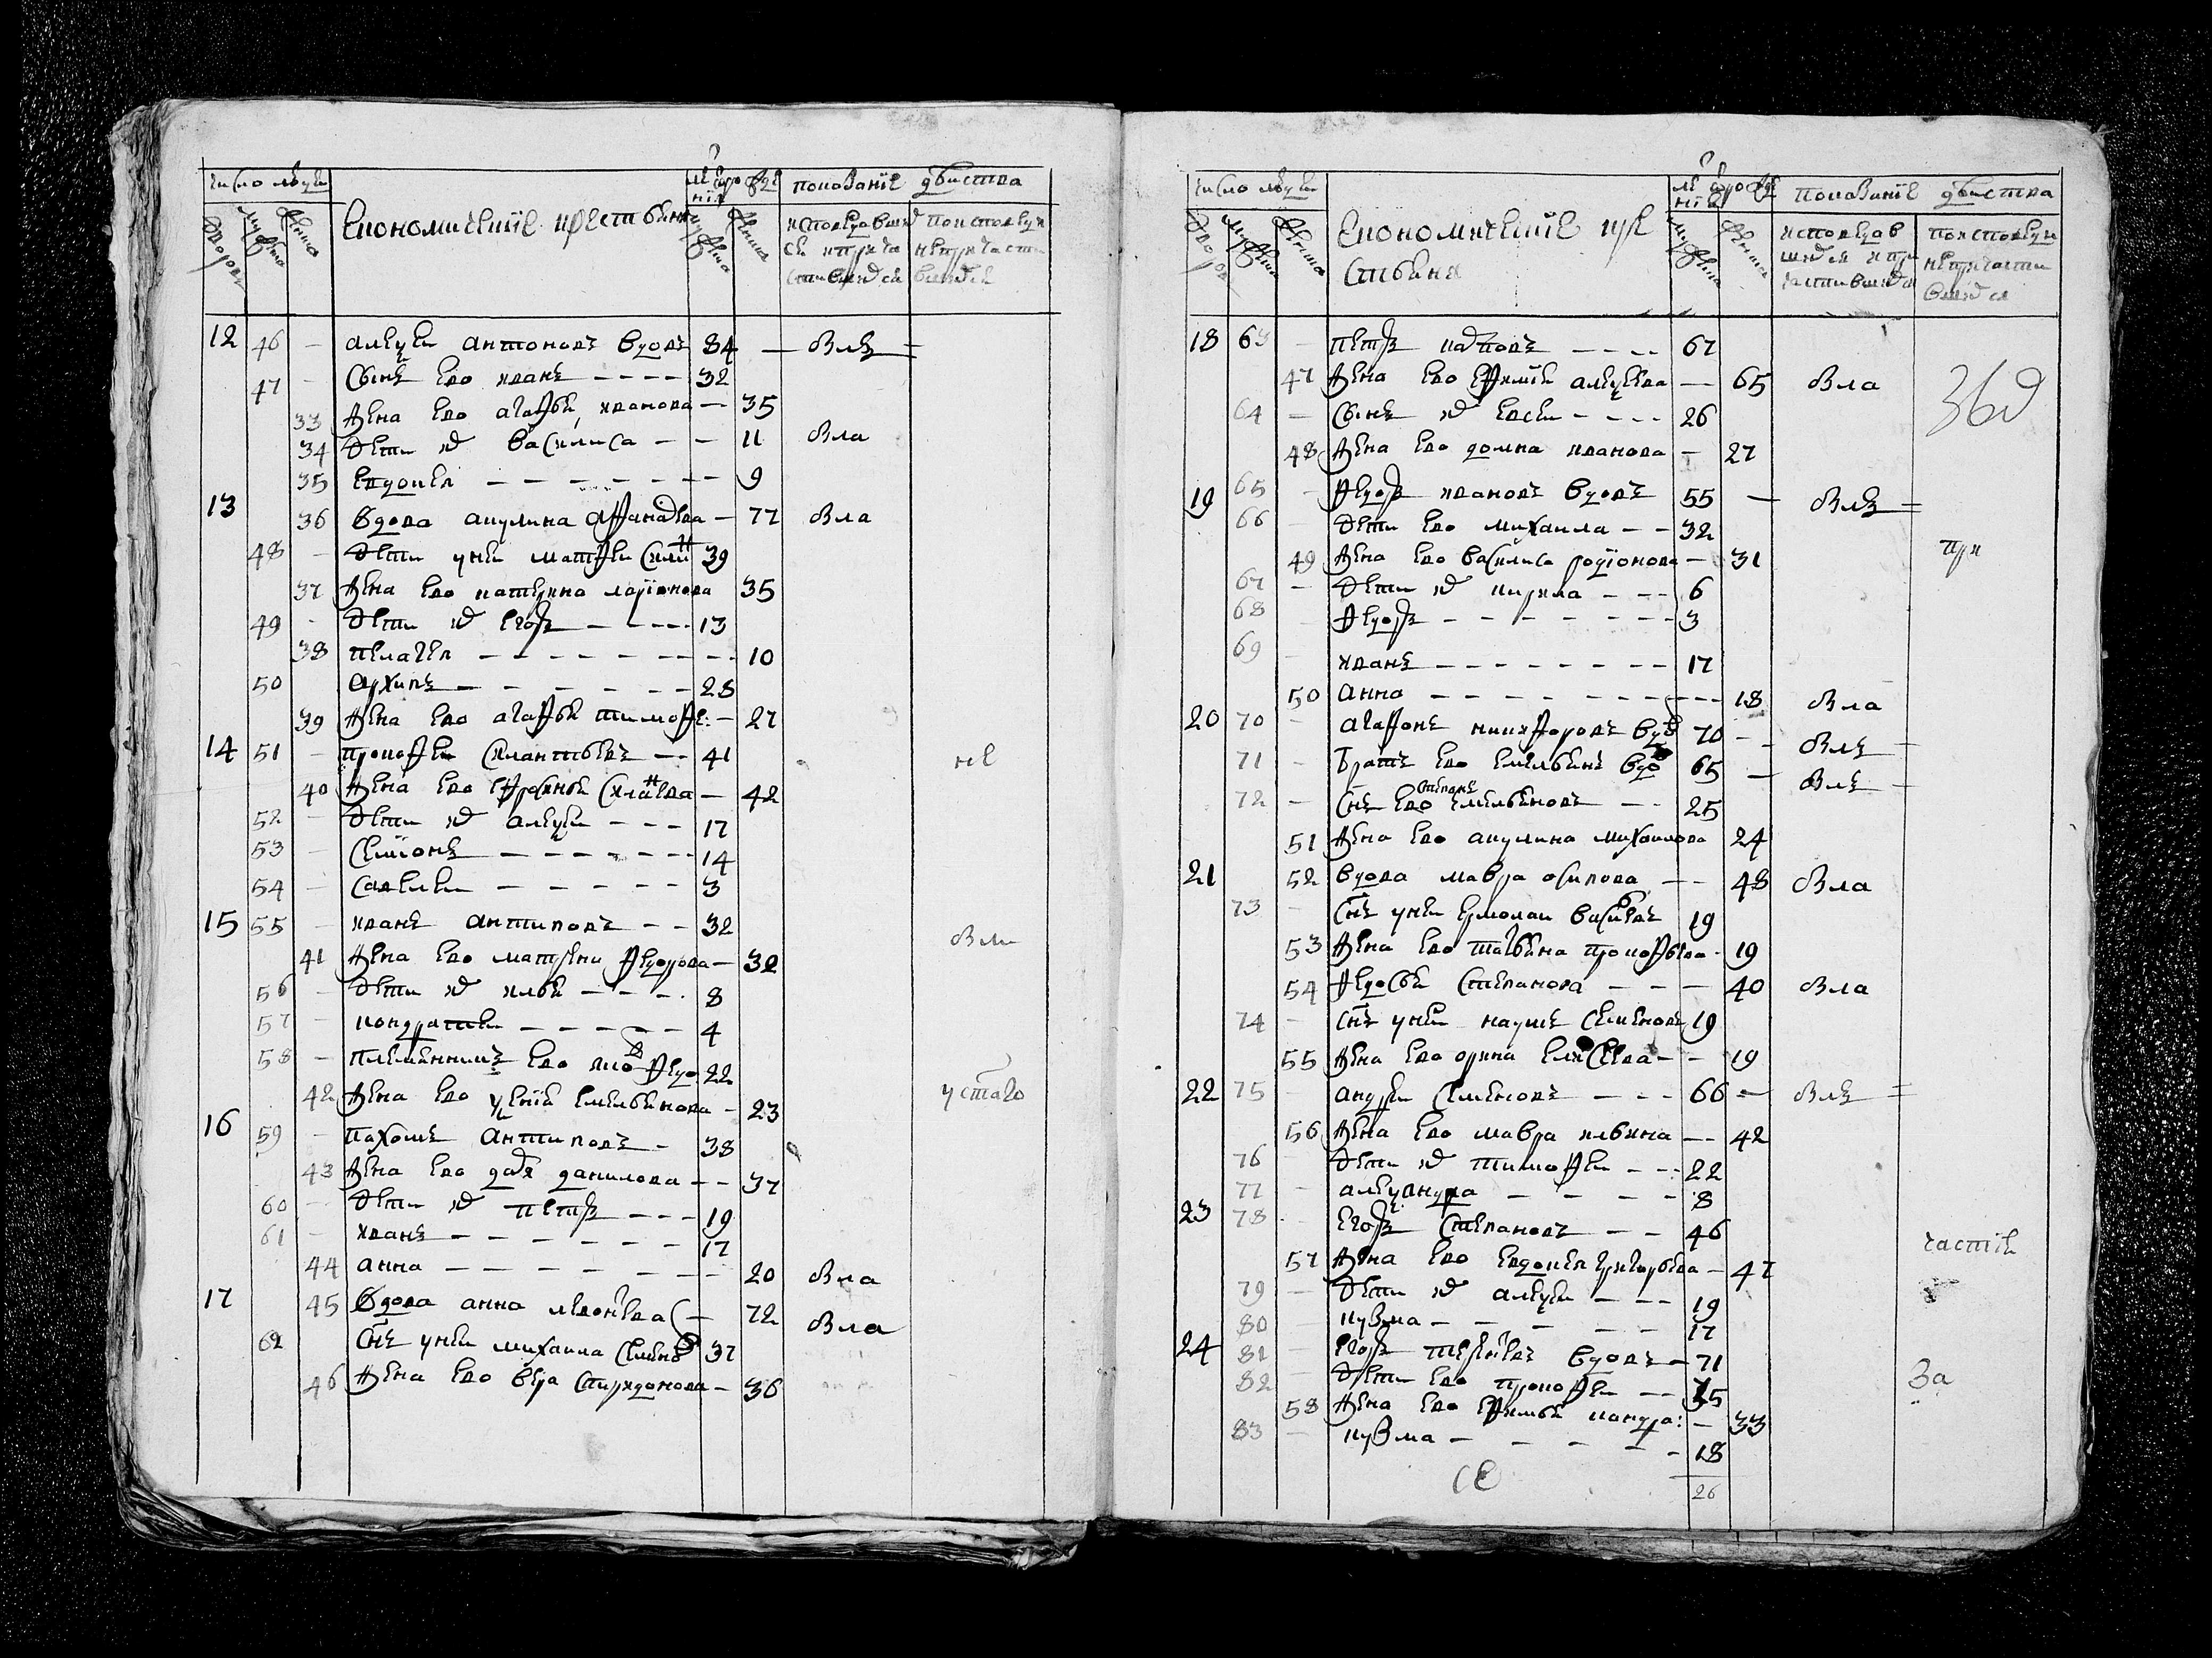 число людей
лѣ от рожде
нія
показаніе дѣиства
дворовъ
мужеска
женска
Економическіе крестьяня
мужеска
женска
исповедавших
ся и прича
стившихся
по исповеди
не причасти
вшихся
12 46 – алеѯеи антоновъ вдовъ 84 – – былъ =
47 – сынъ ево иванъ – – – – 32
33 жена ево агафья иванова – 35
34 дети их василиса – – 11 была
35 евдокея – – – – – – – 9
13 36 вдова акулина афанасева – 77 была
48 – дети у неи матфеи силин 39
37 жена ево катерина ларионова 35
49 – дети их егоръ – – – – 13
38 пелагея – – – – – – – – 10
50 архипъ – – – – – – – 28
39 жена ево агафья тимофе: – 27
14 51 – прокофеи силантьевъ – – 41 не
40 жена ево ефросинья – 42
52 – дети их алеѯеи – – – 17
53 – семіонъ – – – – – – – 14
54 – савелеи – – – – – 3
15 55 – иванъ антиповъ – – 32 были
41 жена ево матрена федорова – 32
56 – дети их илья – – – 8
57 – кондратеи – – – – – 4
58 – племянникъ ево федо 22
42 жена ево ѯеніа емельянова – 23 у стаго
16 59 – пахомъ антиповъ – 38
43 жена ево дарья данилова – – 37
60 – дети их петръ – – – 19
61 – иванъ – – – – – – 17
44 анна – – – – – – – 20 была
17 45 вдова анна леонтева – 72 была
62 снъ у неи михаила семенов 37
46 жена ево вера спиридонова – 36
число людей
лѣ от рожде
нія
показаніе дѣиства
дворовъ
мужеска
женска
Економическіе кре
стьяня
мужеска
женска
исповедав
шихся и при
частившихся
по исповеди
не причасти
вшихся
18 63 – петръ карповъ – – – – 67
47 жена ево ефимія алеѯеева – 65 была
64 – сынъ их евсеи – – – – 26
48 жена ево домна иванова – 27
19 65 – федоръ ивановъ вдовъ 55 – былъ =
66 – дети ево михаила – – 32 при
49 жена ево василиса родіонова – 31
67 – дети их кирила – – – 6
68 федоръ – – – – – – – 3
69 – иванъ – – – – – – – 17
50 анна – – – – – – – – 18 была
20 70 – агафонъ никифоровъ вдо 70 – былъ =
71 – братъ ево емельянъ вдо 65 – былъ –
72 – снъ ево степанъ емельяновъ – – 25
51 жена ево акулина михаилова 24
21 52 вдова мавра осипова – – 48 была
73 – снъ у неи ермолаи васильевъ 19
53 жена ево татьяна прокофьева – 19
54 федосья степанова – – – 40 была
74 – снъ у неи наумъ семеновъ 19
55 жена ево орина елисеева – – 19
22 75 – андреи семеновъ – – – 66 – былъ =
56 жена ево мавра ильина – – 42
76 – дети их тимофеи – – – 22
77 – алеѯандра – – – – 8
23 78 – егоръ степановъ – – 46 частіе
57 жена ево евдокея григорьева – 47
79 – дети их алеѯеи – – – 19
80 – кузма – – – – – 17
24 81 – егоръ вдовъ – 71
82 – дети ево прокофеи – – 35 за
58 жена ево ефимья кондра: – 33
83 – кузма – – – – – 18
26